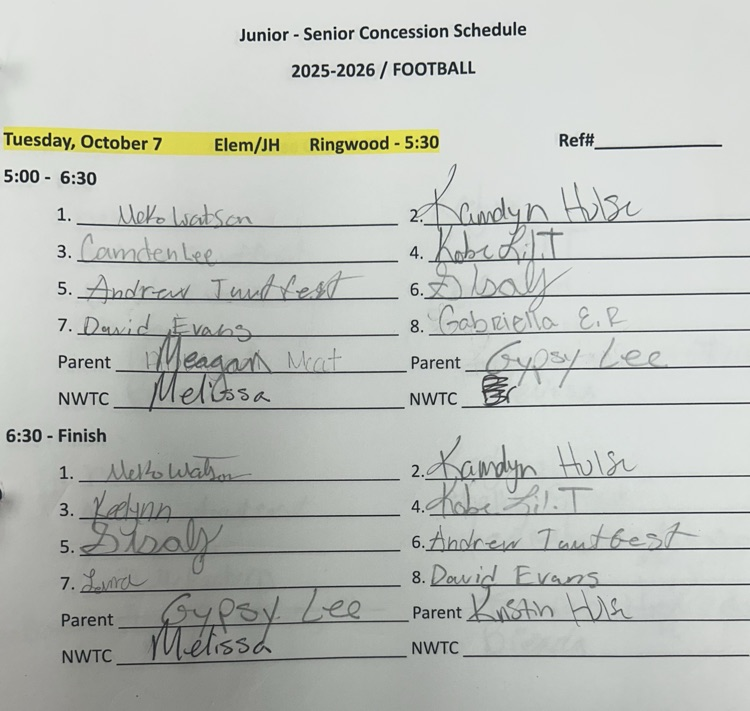 Junior - Senior Concession Schedule
2025-2026 / FOOTBALL
Tuesday, October 7 Elem/JH Ringwood - 5:30 Ref#
5:00 - 6:30
1. Meko Watson 2. Kamdyn Hulse
3. Camden Lee 4. Kobe Lil.T
5. Andrew Tautfest 6.
7. David Evans 8. Gabriella E.R
Parent Meagan Parent Gypsy Lee
NWTC Melissa NWTC
6:30 - Finish
1. Meko Watson 2. Kamdyn Hulse
3. Kaelynn 4. Kobe Lil.T
5. 6. Andrew Tautfest
7. 8. David Evans
Parent Gypsy Lee Parent Kristin Hulse
NWTC Melissa NWTC